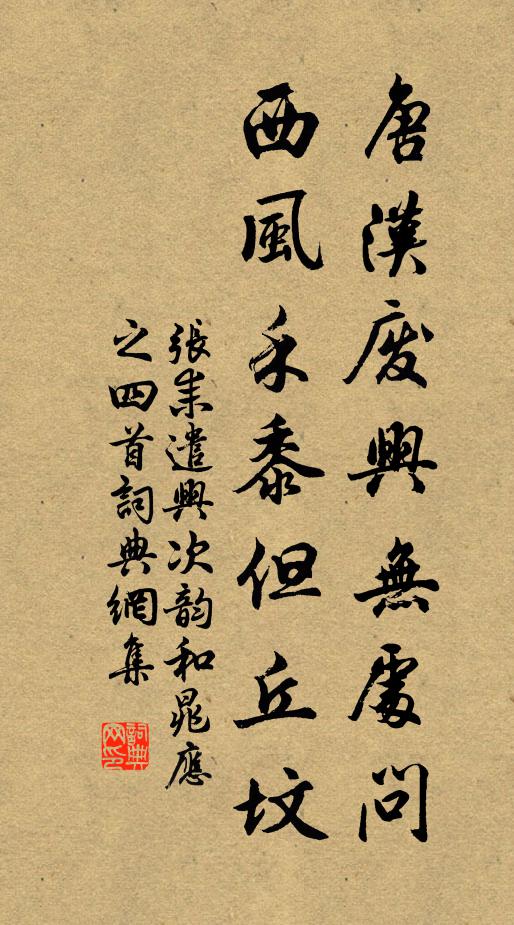 唐漢廢興無處問
西風禾黍但丘墳
張耒遣興次韵和晁應
之四首詞典網集
詞典
网印